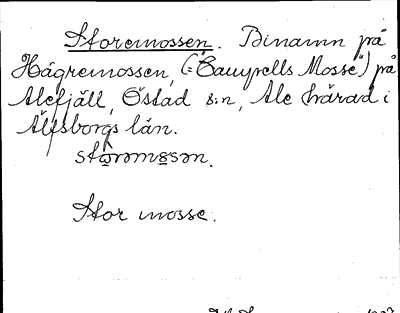 Storemossen. Binamn på
Hägremossen, (="Campells Mosse") på
Alefjäll, Östad s:n, Ale härad i
Älfsborgs län.
Stor mosse.